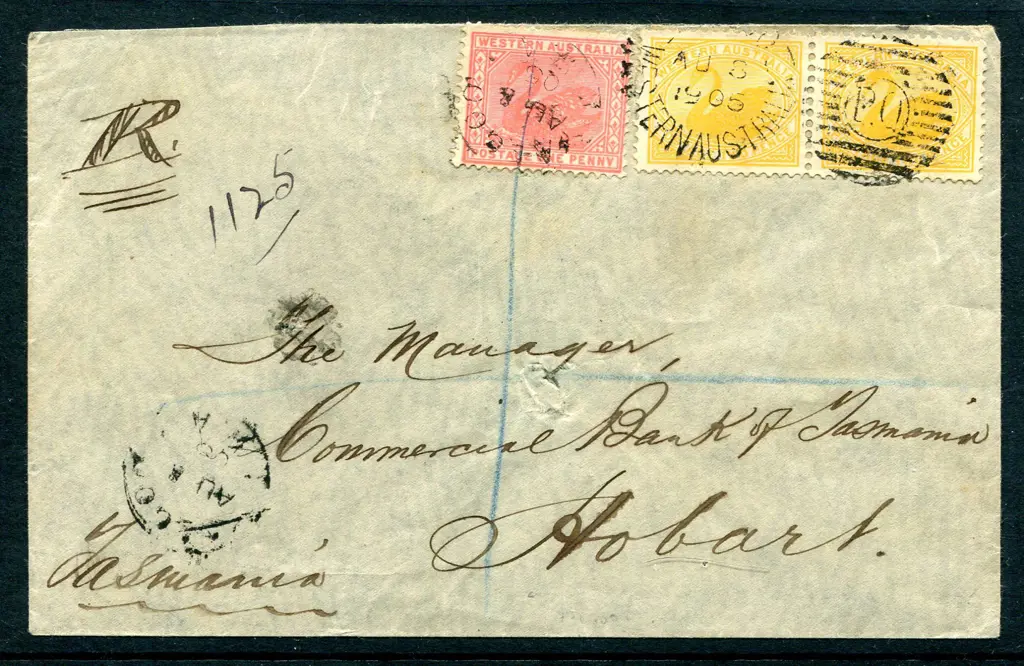 WESTERN AUSTRALIA
POSTAGE ONE PENNY
WESTERN AUSTRALIA
AU 8
05
WESTERN AUSTRALIA
P.O
R.
1125
The Manager,
Commercial Bank of Tasmania
Hobart.
Tasmania
AU